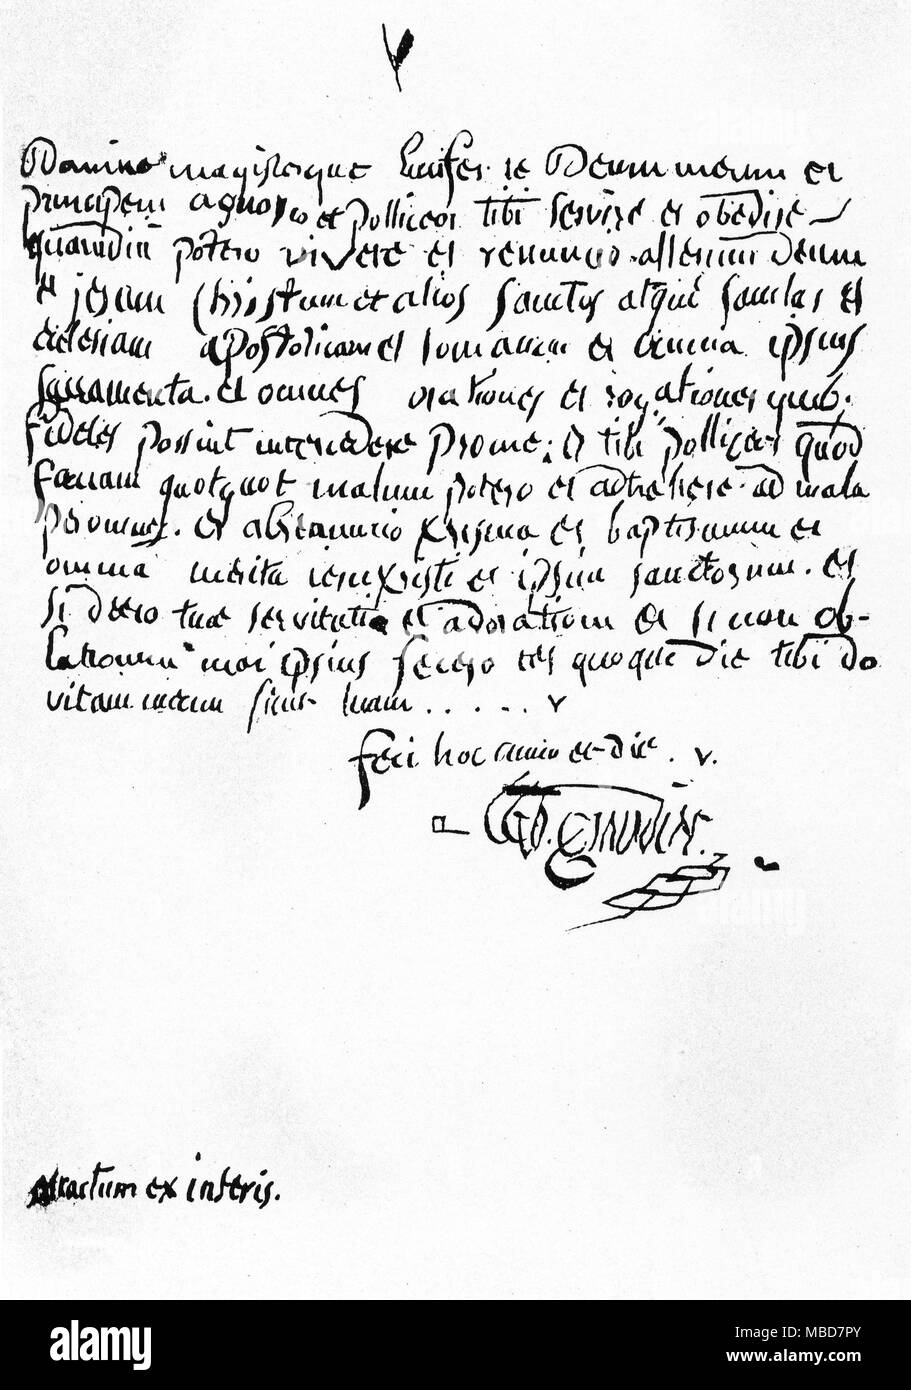 Domine magisterque lucifer te Deum meum et
principem agnosco et polliceor tibi servire et obedire
quandiu potero vivere et renuncio alterium Deum
et jesum Christum et alios sanctos atque sanctas et
eclesiam apostolicam et romanam et omnia ipsius
sacramenta. et omnes orationes et rogationes quib.
fideles possint intercedere pro me; et tibi polliceor quod
faciam quotquot malum potero et adtrahere ad mala
per omnes. et abrenuncio xrisma et baptismum et
omnia merita iesu xristi et ipsius sanctorum. et
si deero tuae servituti et adorationi et si non ob-
lationem mei ipsius fecero ter quoque die tibi do
vitam meam sicut tuam . . . . . v
feci hoc anno et die . v.
extractum ex inferis.
alamy
Image ID: MBD7PY
www.alamy.com